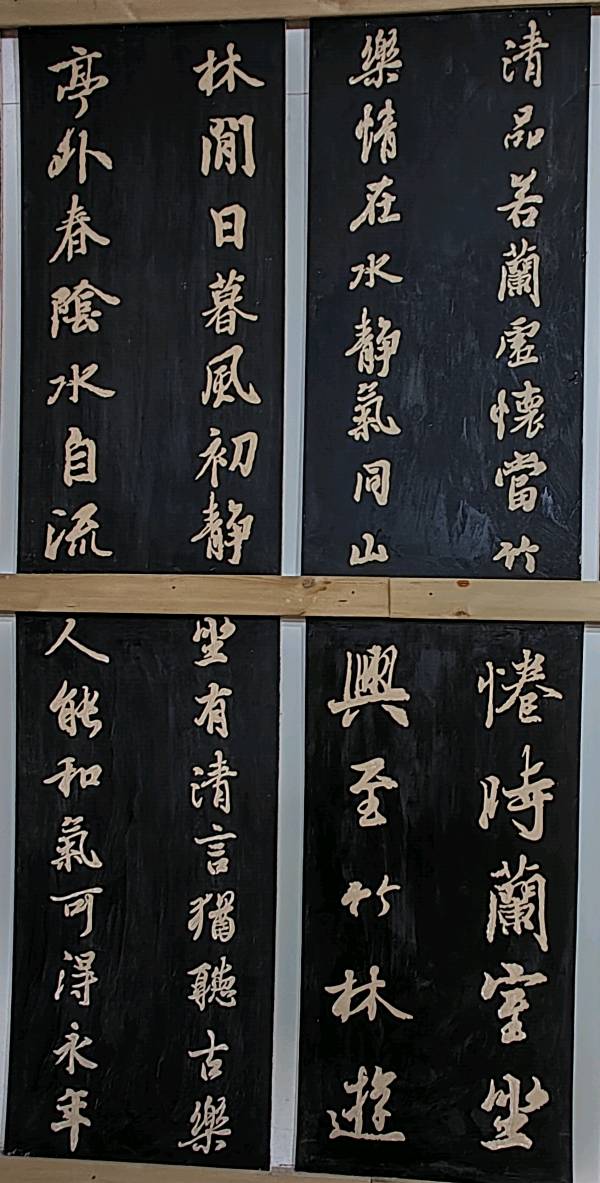 清品若蘭虛懷當竹
樂情在水靜氣同山
林間日暮風初靜
亭外春陰水自流
惓時蘭室坐
興至竹林遊
坐有清言猶聽古樂
人能和氣可得永年